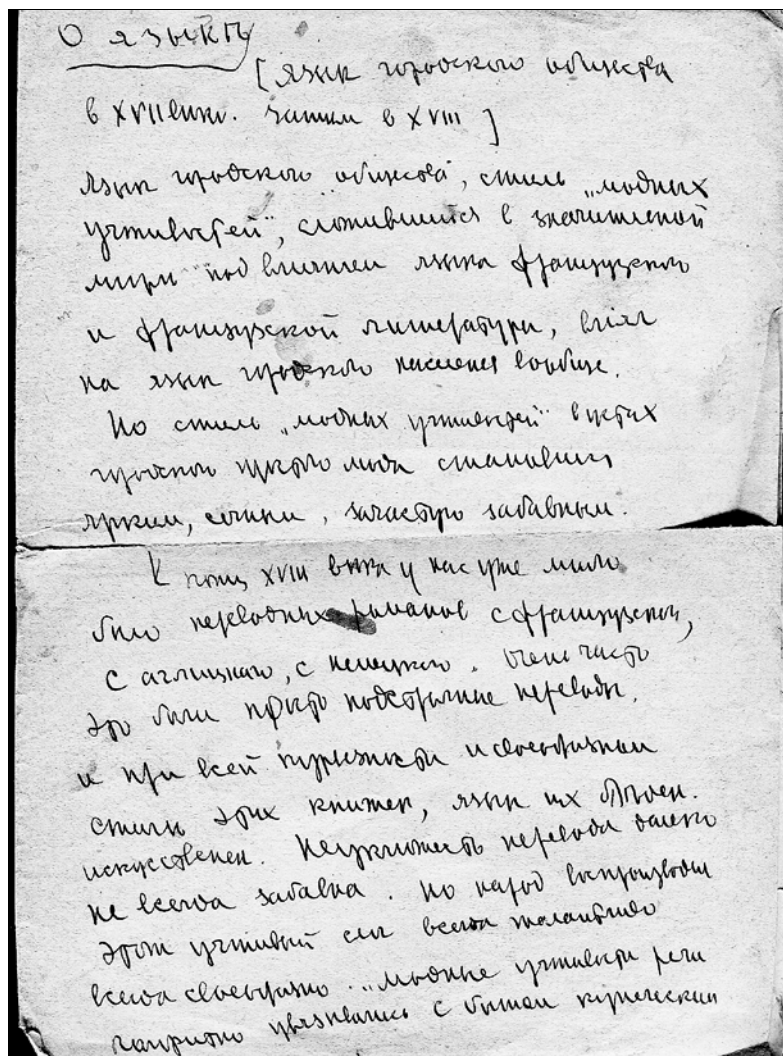 О языкѣ
[язык городского общества
в XVII веке. затем в XVIII ]
Язык городского общества, стиль „модных
учтивостей", сложившийся в значительной
мере под влиянием языка французского
и французской литературы, влиял
на язык городского населения вообще.
Но стиль „модных учтивостей" в устах
городского простого люда становился
ярким, сочным, зачастую забавным.
К концу XVIII века у нас уже много
было переводных романов с французского,
с аглицкаго, с немецкого. Очень часто
это были просто подстрочные переводы.
и при всей курьезности и своеобразии
стиля этих книжек, язык их бледен.
искусственен. Неуклюжесть перевода далеко
не всегда забавна. но народ воспроизводил
этот учтивый слог всегда талантливо
всегда своеобразно. „модные учтивости речи
увязывались с бытом купеческим